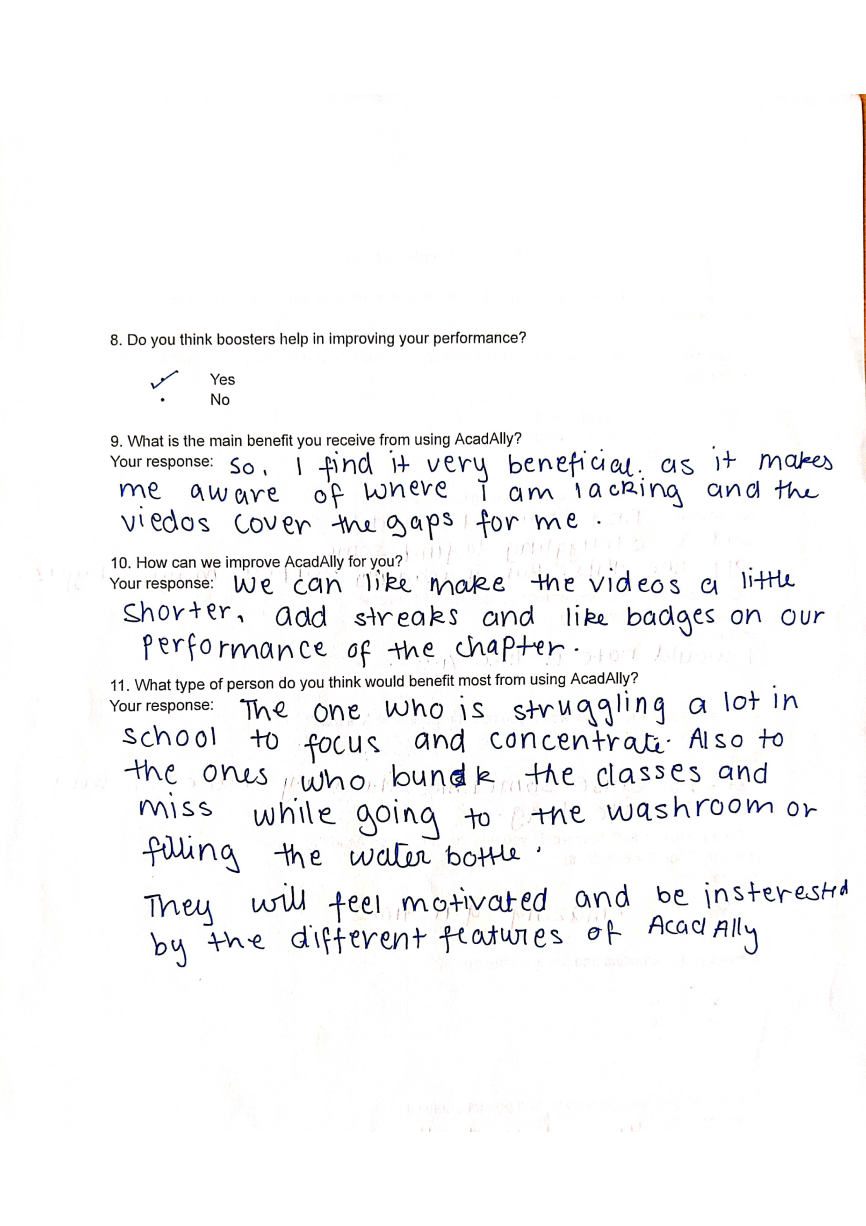 8. Do you think boosters help in improving your performance?
Yes
No
9. What is the main benefit you receive from using AcadAlly?
Your response: So, I find it very beneficial. as it makes
me aware of where I am lacking and the
viedos cover the gaps for me.
10. How can we improve AcadAlly for you?
Your response: We can like make the videos a little
shorter, add streaks and like badges on our
performance of the chapter.
11. What type of person do you think would benefit most from using AcadAlly?
Your response: The one who is struggling a lot in
school to focus and concentrate. Also to
the ones who bunk the classes and
miss while going to the washroom or
filling the water bottle.
They will feel motivated and be insterested
by the different features of AcadAlly